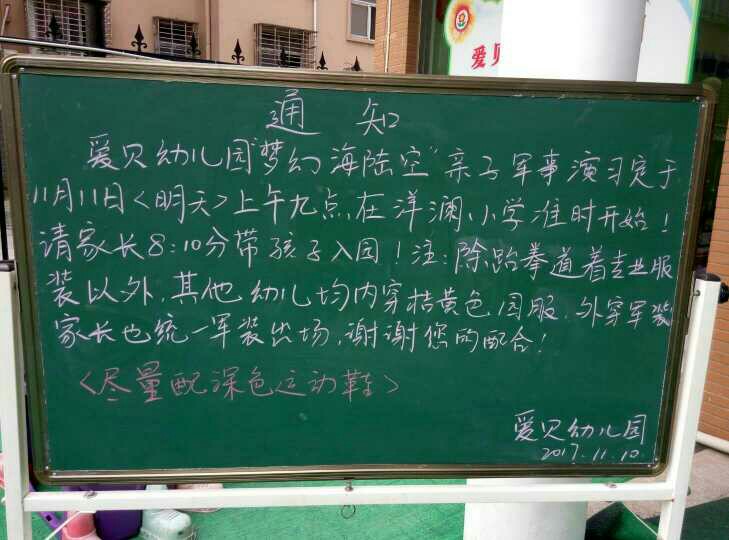 爱贝
通知
爱贝幼儿园“梦幻海陆空”亲子军事演习定于
11月11日<明天>上午九点在洋澜小学准时开始!
请家长8:10分带孩子入园!注:除跆拳道着专业服
装以外,其他幼儿均内穿桔黄色园服,外穿军装
家长也统一军装出场,谢谢您的配合!
<尽量配深色运动鞋>
爱贝幼儿园
2017.11.10